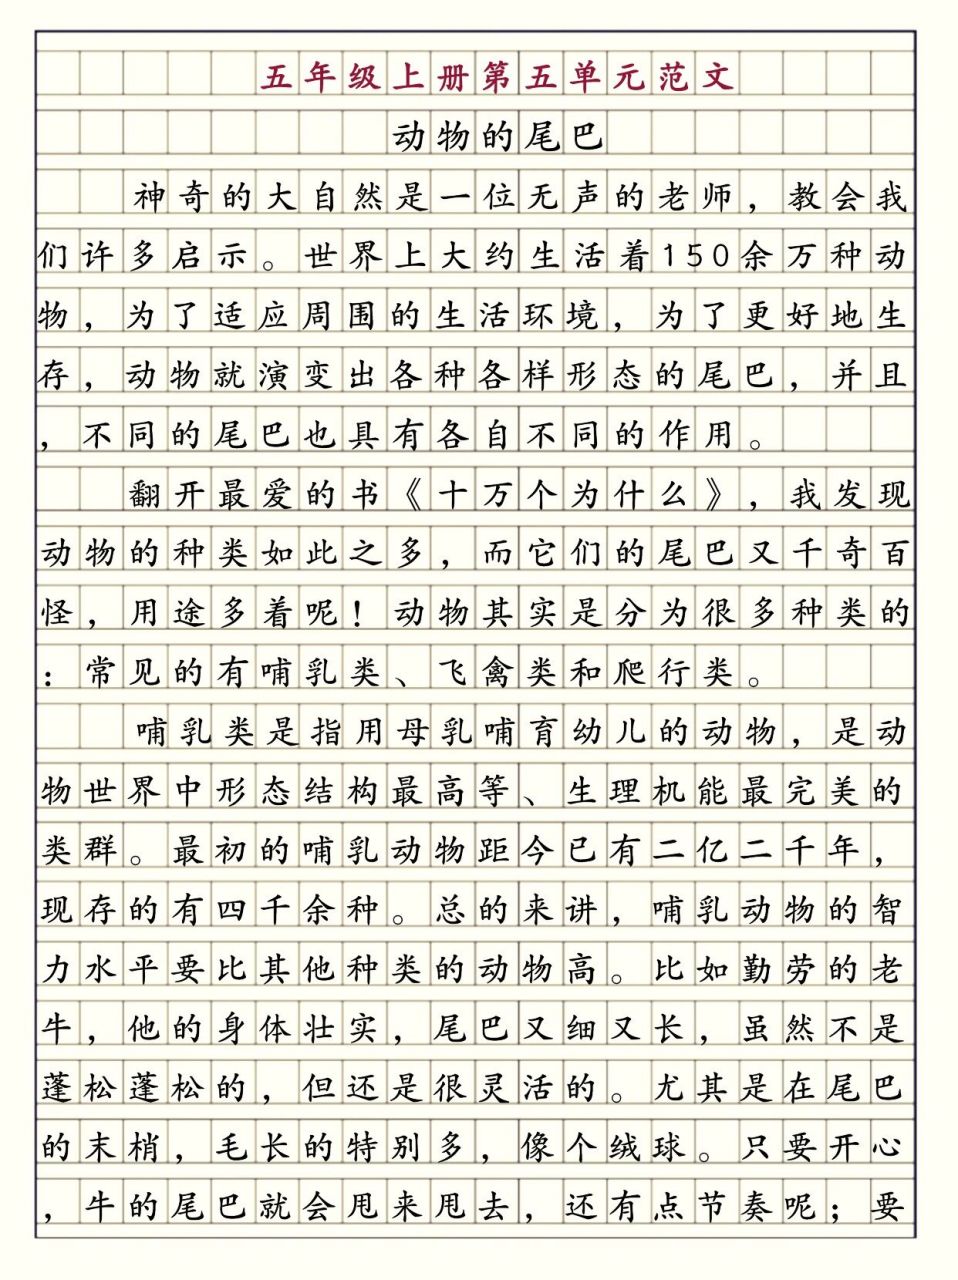 五年级上册第五单元范文
动物的尾巴
神奇的大自然是一位无声的老师，教会我
们许多启示。世界上大约生活着150余万种动
物，为了适应周围的生活环境，为了更好地生
存，动物就演变出各种各样形态的尾巴，并且
，不同的尾巴也具有各自不同的作用。
翻开最爱的书《十万个为什么》，我发现
动物的种类如此之多，而它们的尾巴又千奇百
怪，用途多着呢！动物其实是分为很多种类的
：常见的有哺乳类、飞禽类和爬行类。
哺乳类是指用母乳哺育幼儿的动物，是动
物世界中形态结构最高等、生理机能最完美的
类群。最初的哺乳动物距今已有二亿二千年，
现存的有四千余种。总的来讲，哺乳动物的智
力水平要比其他种类的动物高。比如勤劳的老
牛，他的身体壮实，尾巴又细又长，虽然不是
蓬松蓬松的，但还是很灵活的。尤其是在尾巴
的末梢，毛长的特别多，像个绒球。只要开心
，牛的尾巴就会甩来甩去，还有点节奏呢；要